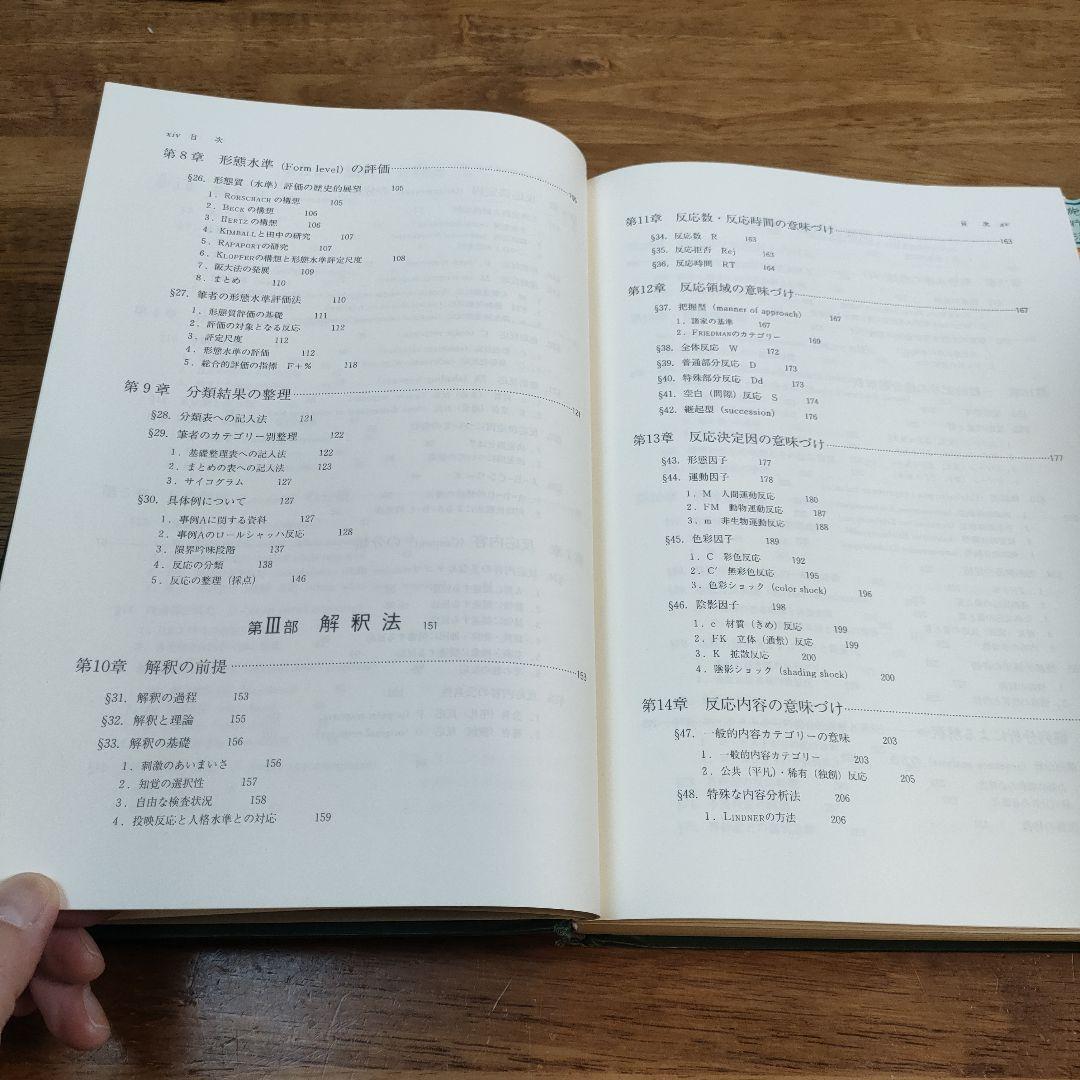 xiv 目 次
第8章 形態水準 (Form level) の評価 105
§26. 形態質 (水準) 評価の歴史的展望 105
1. RORSCHACHの構想 105
2. BECKの構想 106
3. HERTZの構想 106
4. KIMBALLと田中の研究 107
5. RAPAPORTの研究 107
6. KLOPFERの構想と形態水準評定尺度 108
7. 阪大法の発展 109
8. まとめ 110
§27. 筆者の形態水準評価法 110
1. 形態質評価の基礎 111
2. 評価の対象となる反応 112
3. 評定尺度 112
4. 形態水準の評価 112
5. 総合的評価の指標 F+% 118
第9章 分類結果の整理 121
§28. 分類表への記入法 121
§29. 筆者のカテゴリー別整理 122
1. 基礎整理表への記入法 122
2. まとめの表への記入法 123
3. サイコグラム 127
§30. 具体例について 127
1. 事例Aに関する資料 127
2. 事例Aのロールシャッハ反応 128
3. 限界吟味段階 137
4. 反応の分類 138
5. 反応の整理 (採点) 146
第III部 解釈法 151
第10章 解釈の前提 153
§31. 解釈の過程 153
§32. 解釈と理論 155
§33. 解釈の基礎 156
1. 刺激のあいまいさ 156
2. 知覚の選択性 157
3. 自由な検査状況 158
4. 投映反応と人格水準との対応 159
目 次 xv
第11章 反応数・反応時間の意味づけ 163
§34. 反応数 R 163
§35. 反応拒否 Rej 163
§36. 反応時間 RT 164
第12章 反応領域の意味づけ 167
§37. 把握型 (manner of approach) 167
1. 諸家の基準 167
2. FRIEDMANのカテゴリー 169
§38. 全体反応 W 172
§39. 普通部分反応 D 173
§40. 特殊部分反応 Dd 173
§41. 空白 (間隙) 反応 S 174
§42. 継起型 (succession) 176
第13章 反応決定因の意味づけ 177
§43. 形態因子 177
§44. 運動因子 178
1. M 人間運動反応 180
2. FM 動物運動反応 187
3. m 非生物運動反応 188
§45. 色彩因子 189
1. C 彩色反応 192
2. C′ 無彩色反応 195
3. 色彩ショック (color shock) 196
§46. 陰影因子 198
1. c 材質 (きめ) 反応 199
2. FK 立体 (通景) 反応 199
3. K 拡散反応 200
4. 陰影ショック (shading shock) 200
第14章 反応内容の意味づけ
§47. 一般的内容カテゴリーの意味 203
1. 一般的内容カテゴリー 203
2. 公共 (平凡)・稀有 (独創) 反応 205
§48. 特殊な内容分析法 206
1. LINDNERの方法 206